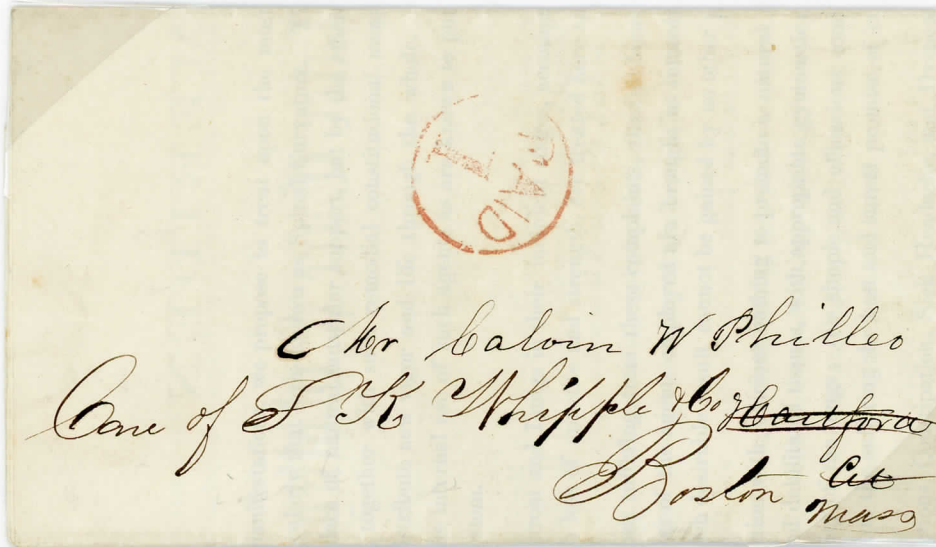 PAID
1
Mr Calvin W Philleo
Care of S K Whipple & Co Hartford
Boston Ct
Mass